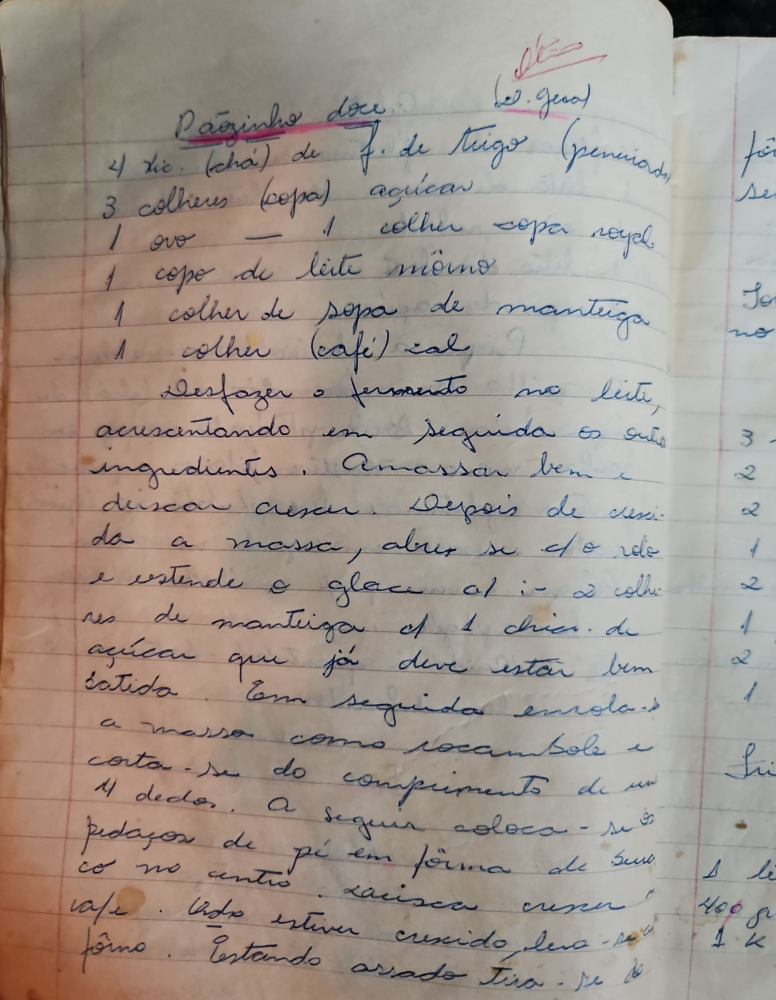 Pãozinho doce (D. Gera)
4 xic. (chá) de f. de trigo (peneirada
3 colheres (sopa) açúcar
1 ovo — 1 colher sopa royal
1 copo de leite môrno
1 colher de sopa de manteiga
1 colher (café) sal
Desfazer o fermento no leite,
acrescentando em seguida os outros
ingredientes. Amassar bem e
deixar crescer. Depois de cresci-
da a massa, abre se c/ o rolo
e estende o glace c/ :- 2 colhe-
res de manteiga c/ 1 chic. de
açúcar que já deve estar bem
batida. Em seguida enrola-s
a massa como rocambole e
corta-se do comprimento de un
4 dedos. A seguir coloca-se os
pedaços de pé em fôrma de
co no centro. crescer
Qdo estiver crescido, leva-se a
fôrno. Estando assado tira-se d
fôr
se
no
3 -
2
2
1
2
1
2
1
1 li
400 gr
1 K